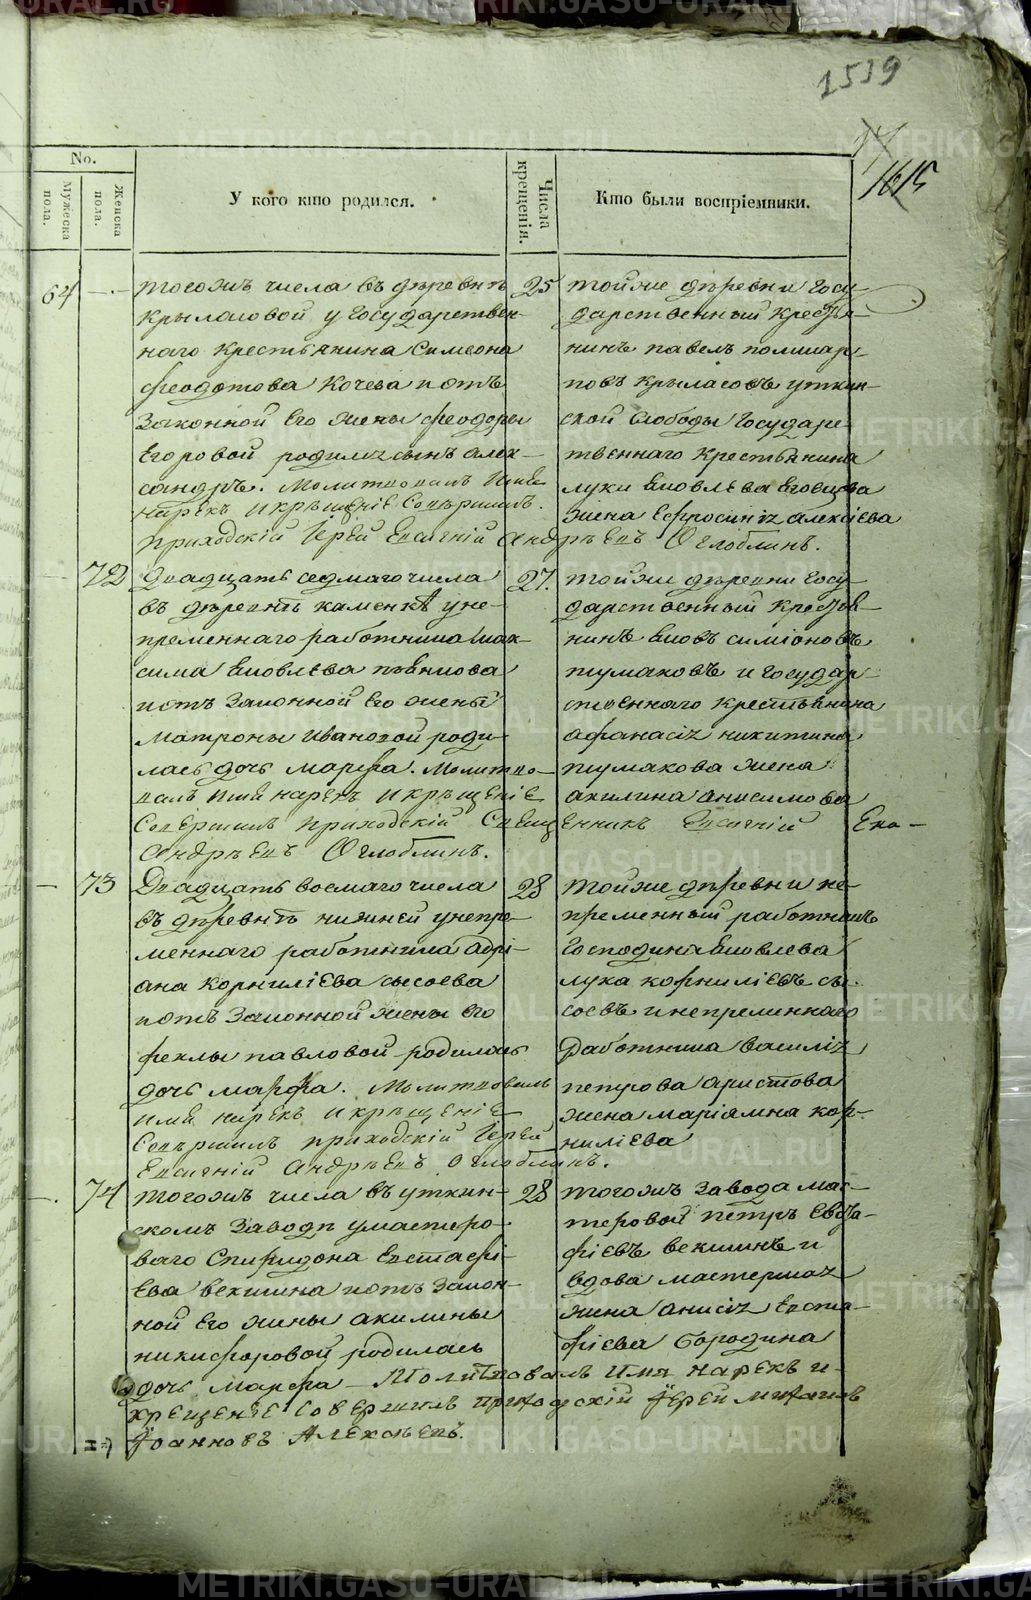 1539
1615
No.
Мужеска пола.
Женска пола.
У кого кто родился.
Числа крещенія.
Кто были воспріемники.
64
тогожъ числа въ деревнѣ
Крыласовой у Государствен-
наго крестьянина Симеона
Феодотова Кочева и отъ
Законной Его жены Феодоры
Егоровой родился сынъ Алек-
сандръ. Молитвовалъ Имя
нарекъ и крещеніе Совершилъ
Приходскій Іерей Евгеній Андреевъ Оглоблинъ.
25
тойже деревни Госу-
дарственный Крестья-
нинъ Павелъ Поликар-
повъ Крыласовъ уткин-
ской Слободы Государс-
твеннаго Крестьянина
Луки Яковлева
жена Ефросинія алексіева
72
Двадцать седмаго числа
въ деревнѣ каменкѣ у не-
премѣннаго работника Мак-
сима Яковлева
и отъ Законной Его жены
Матроны Ивановой роди-
лась дочь Марфа. Молитво-
валъ Имя нарекъ и крещеніе
Совершилъ приходскій Священникъ Евгеній
Андреевъ Оглоблинъ.
27.
тойже деревни Госу-
дарственный Крестья-
нинъ Яковъ симіоновъ
тумаковъ и Государ-
ственнаго Крестьянина
Афанасія никитина
тумакова жена
акилина анисимова
73
Двадцать восмаго числа
въ деревнѣ нижней у непре-
меннаго работника Адрі-
ана Корниліева сысоева
и отъ Законной жены Его
Феклы павловой родилась
дочь Марфа. Молитвовалъ
Имя нарекъ и крещеніе
Совершилъ приходскій Іерей
Евгеній Андреевъ Оглоблинъ.
28
тойже деревни не-
пременный работникъ
Господина Яковлева
лука корниліевъ сы-
соевъ и непременнаго
работника Василія
петрова аристова
жена маріямна кор-
ниліева
74
тогожъ числа въ уткин-
скомъ Заводѣ у мастеро-
ваго Спиридона Евстафі-
ева векшина и отъ Закон-
ной Его жены акилины
никифоровой родилась
дочь Марфа – Молитвовалъ Имя нарекъ и
крещеніе совершилъ приходскій Іерей Михаилъ
Іоанновъ Алексѣевъ.
28
тогожъ Завода мас-
теровой петръ Евста-
фіевъ векшинъ и
вдова мастерская
жена анисія Евста-
фіева бородина
METRIKI.GASO-URAL.RU